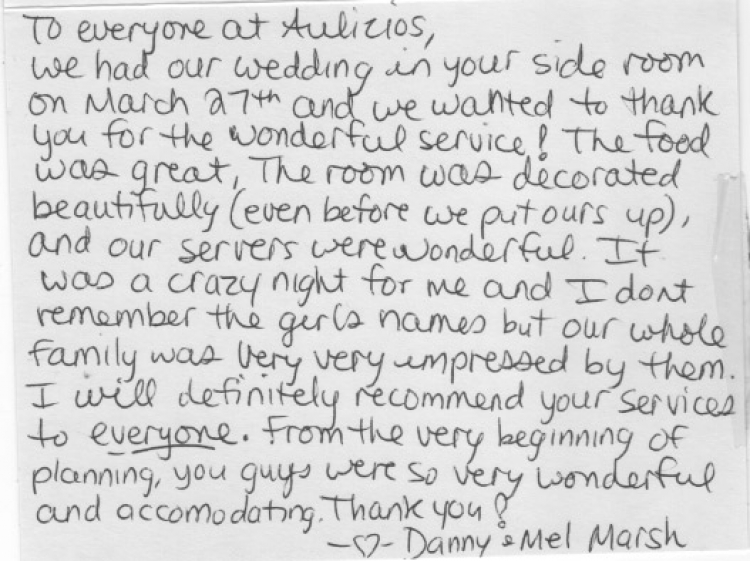 To everyone at Aulizios,
we had our wedding in your side room
on March 27th and we wanted to thank
you for the wonderful service! The food
was great, The room was decorated
beautifully (even before we put ours up),
and our servers were wonderful. It
was a crazy night for me and I dont
remember the girls names but our whole
family was very very impressed by them.
I will definitely recommend your services
to everyone. From the very beginning of
planning, you guys were so very wonderful
and accomodating. Thank you!
-♡- Danny & Mel Marsh